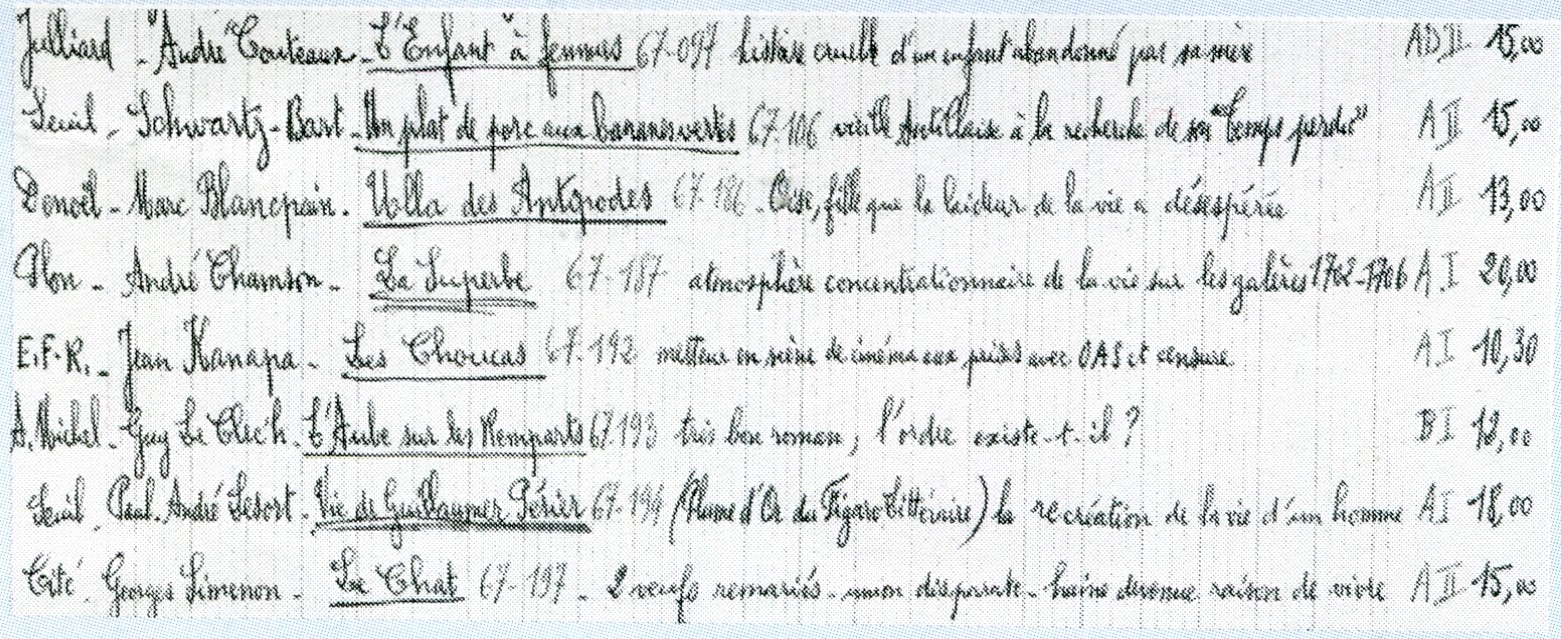 Julliard - André Couteaux - L'Enfant à femmes 67-097 histoire cruelle d'un enfant abandonné par sa mère AD II 15,00
Seuil - Schwartz-Bart - Un plat de porc aux bananes vertes 67.106 vieille Antillaise à la recherche de son "temps perdu" A II 15,00
Denoël - Marc Blancpain - Ulla des Antipodes 67-186 - fille que la laideur de la vie a désespérée A II 13,00
Plon - André Chamson - La Superbe 67-187 atmosphère concentrationnaire de la vie sur les galères 1702-1706 A I 20,00
E.F.R. - Jean Kanapa - Les Choucas 67-192 metteur en scène de cinéma aux prises avec OAS et censure A I 10,30
A. Michel - Guy Le Clec'h - L'Aube sur les Remparts 67.193 très bon roman, l'ordre existe-t-il ? B I 12,00
Seuil - Paul-André Lesort - Vie de Guillaume Périer 67-194 (Plume d'Or du Figaro Littéraire) la recréation de la vie d'un homme A I 18,00
Cité Georges Simenon - Le Chat 67-197 - 2 veufs remariés - union disparate - haine devenue raison de vivre A II 15,00